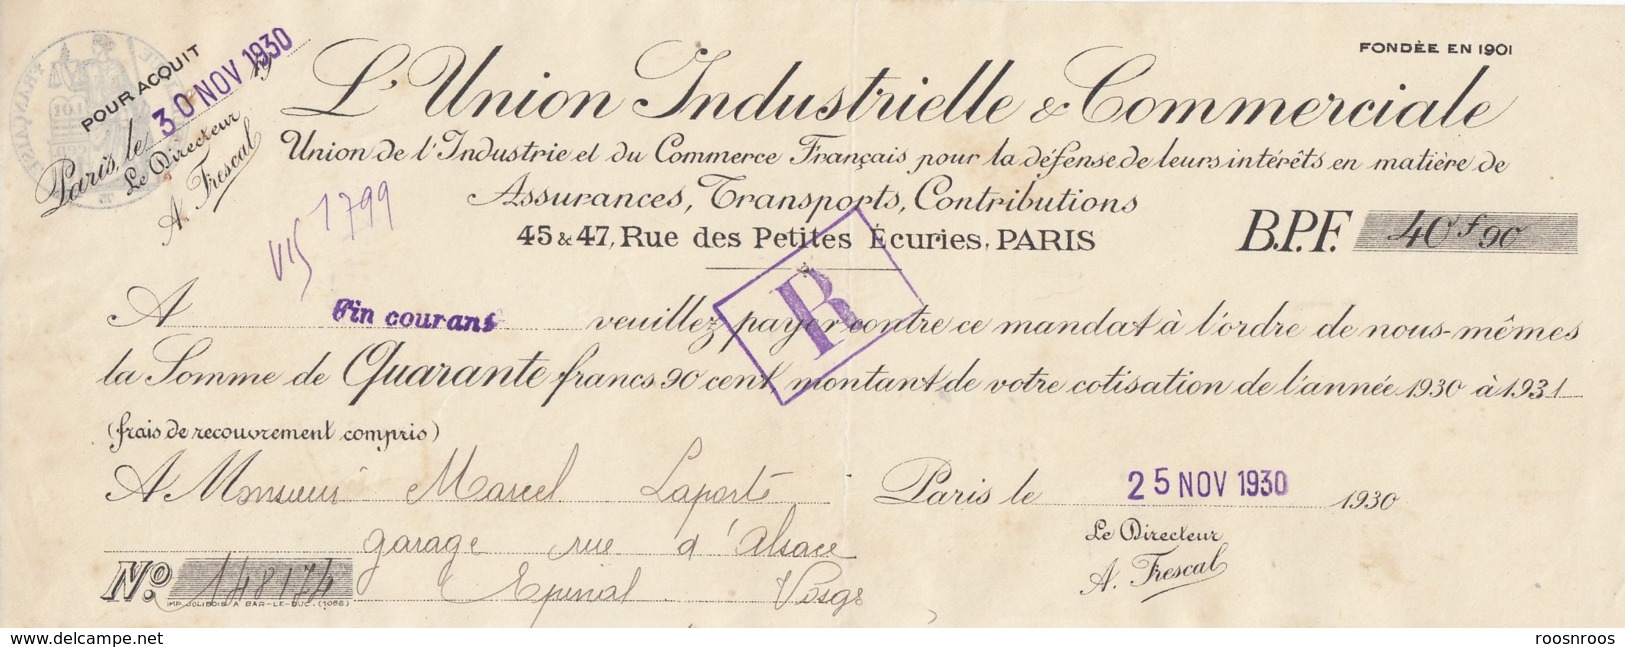 FONDÉE EN 1901
POUR ACQUIT
Paris, le 30 NOV 1930 19
Le Directeur
A. Frescal
L'Union Industrielle & Commerciale
Union de l'Industrie et du Commerce Français pour la défense de leurs intérêts en matière de
Assurances, Transports, Contributions
45 & 47, Rue des Petites Écuries, PARIS
B.P.F. 40f 90
1799
R
A Fin courant veuillez payer contre ce mandat à l'ordre de nous-mêmes
la Somme de Quarante francs 90 cent montant de votre cotisation de l'année 1930 à 1931
(frais de recouvrement compris)
A Monsieur Marcel Laporte
Paris le 25 NOV 1930 1930
garage rue d'Alsace
Le Directeur
A. Frescal
No. 148174
Epinal Vosges
IMP. JOLIBOIS A BAR-LE-DUC. (1086)
www.delcampe.net
roosnroos